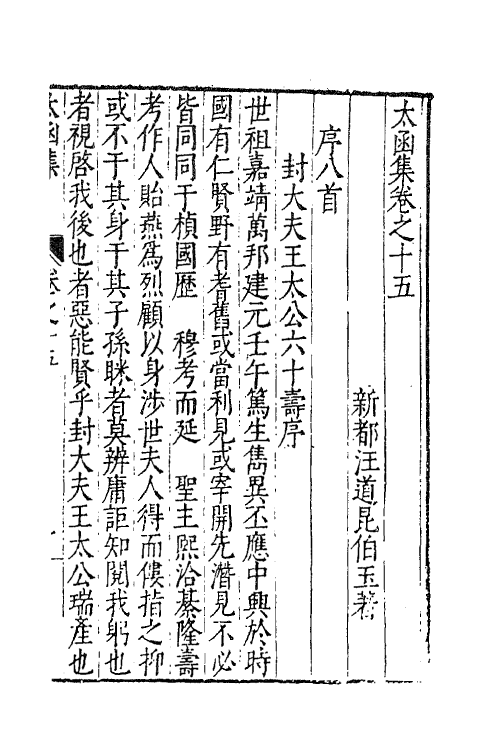 太函集卷之十五
新都汪道昆伯玉著
序八首
封大夫王太公六十壽序
世祖嘉靖萬邦建元壬午篤生雋異丕應中興於時
國有仁賢野有耆舊或當利見或宰開先潛見不必
皆同同于楨國歷　穆考而延　聖主熙洽綦隆壽
考作人貽燕爲烈顧以身涉世夫人得而僂指之抑
或不于其身于其子孫眯者莫辨庸詎知閱我躬也
者視啓我後也者惡能賢乎封大夫王太公瑞產也
太函集　卷之十五　一